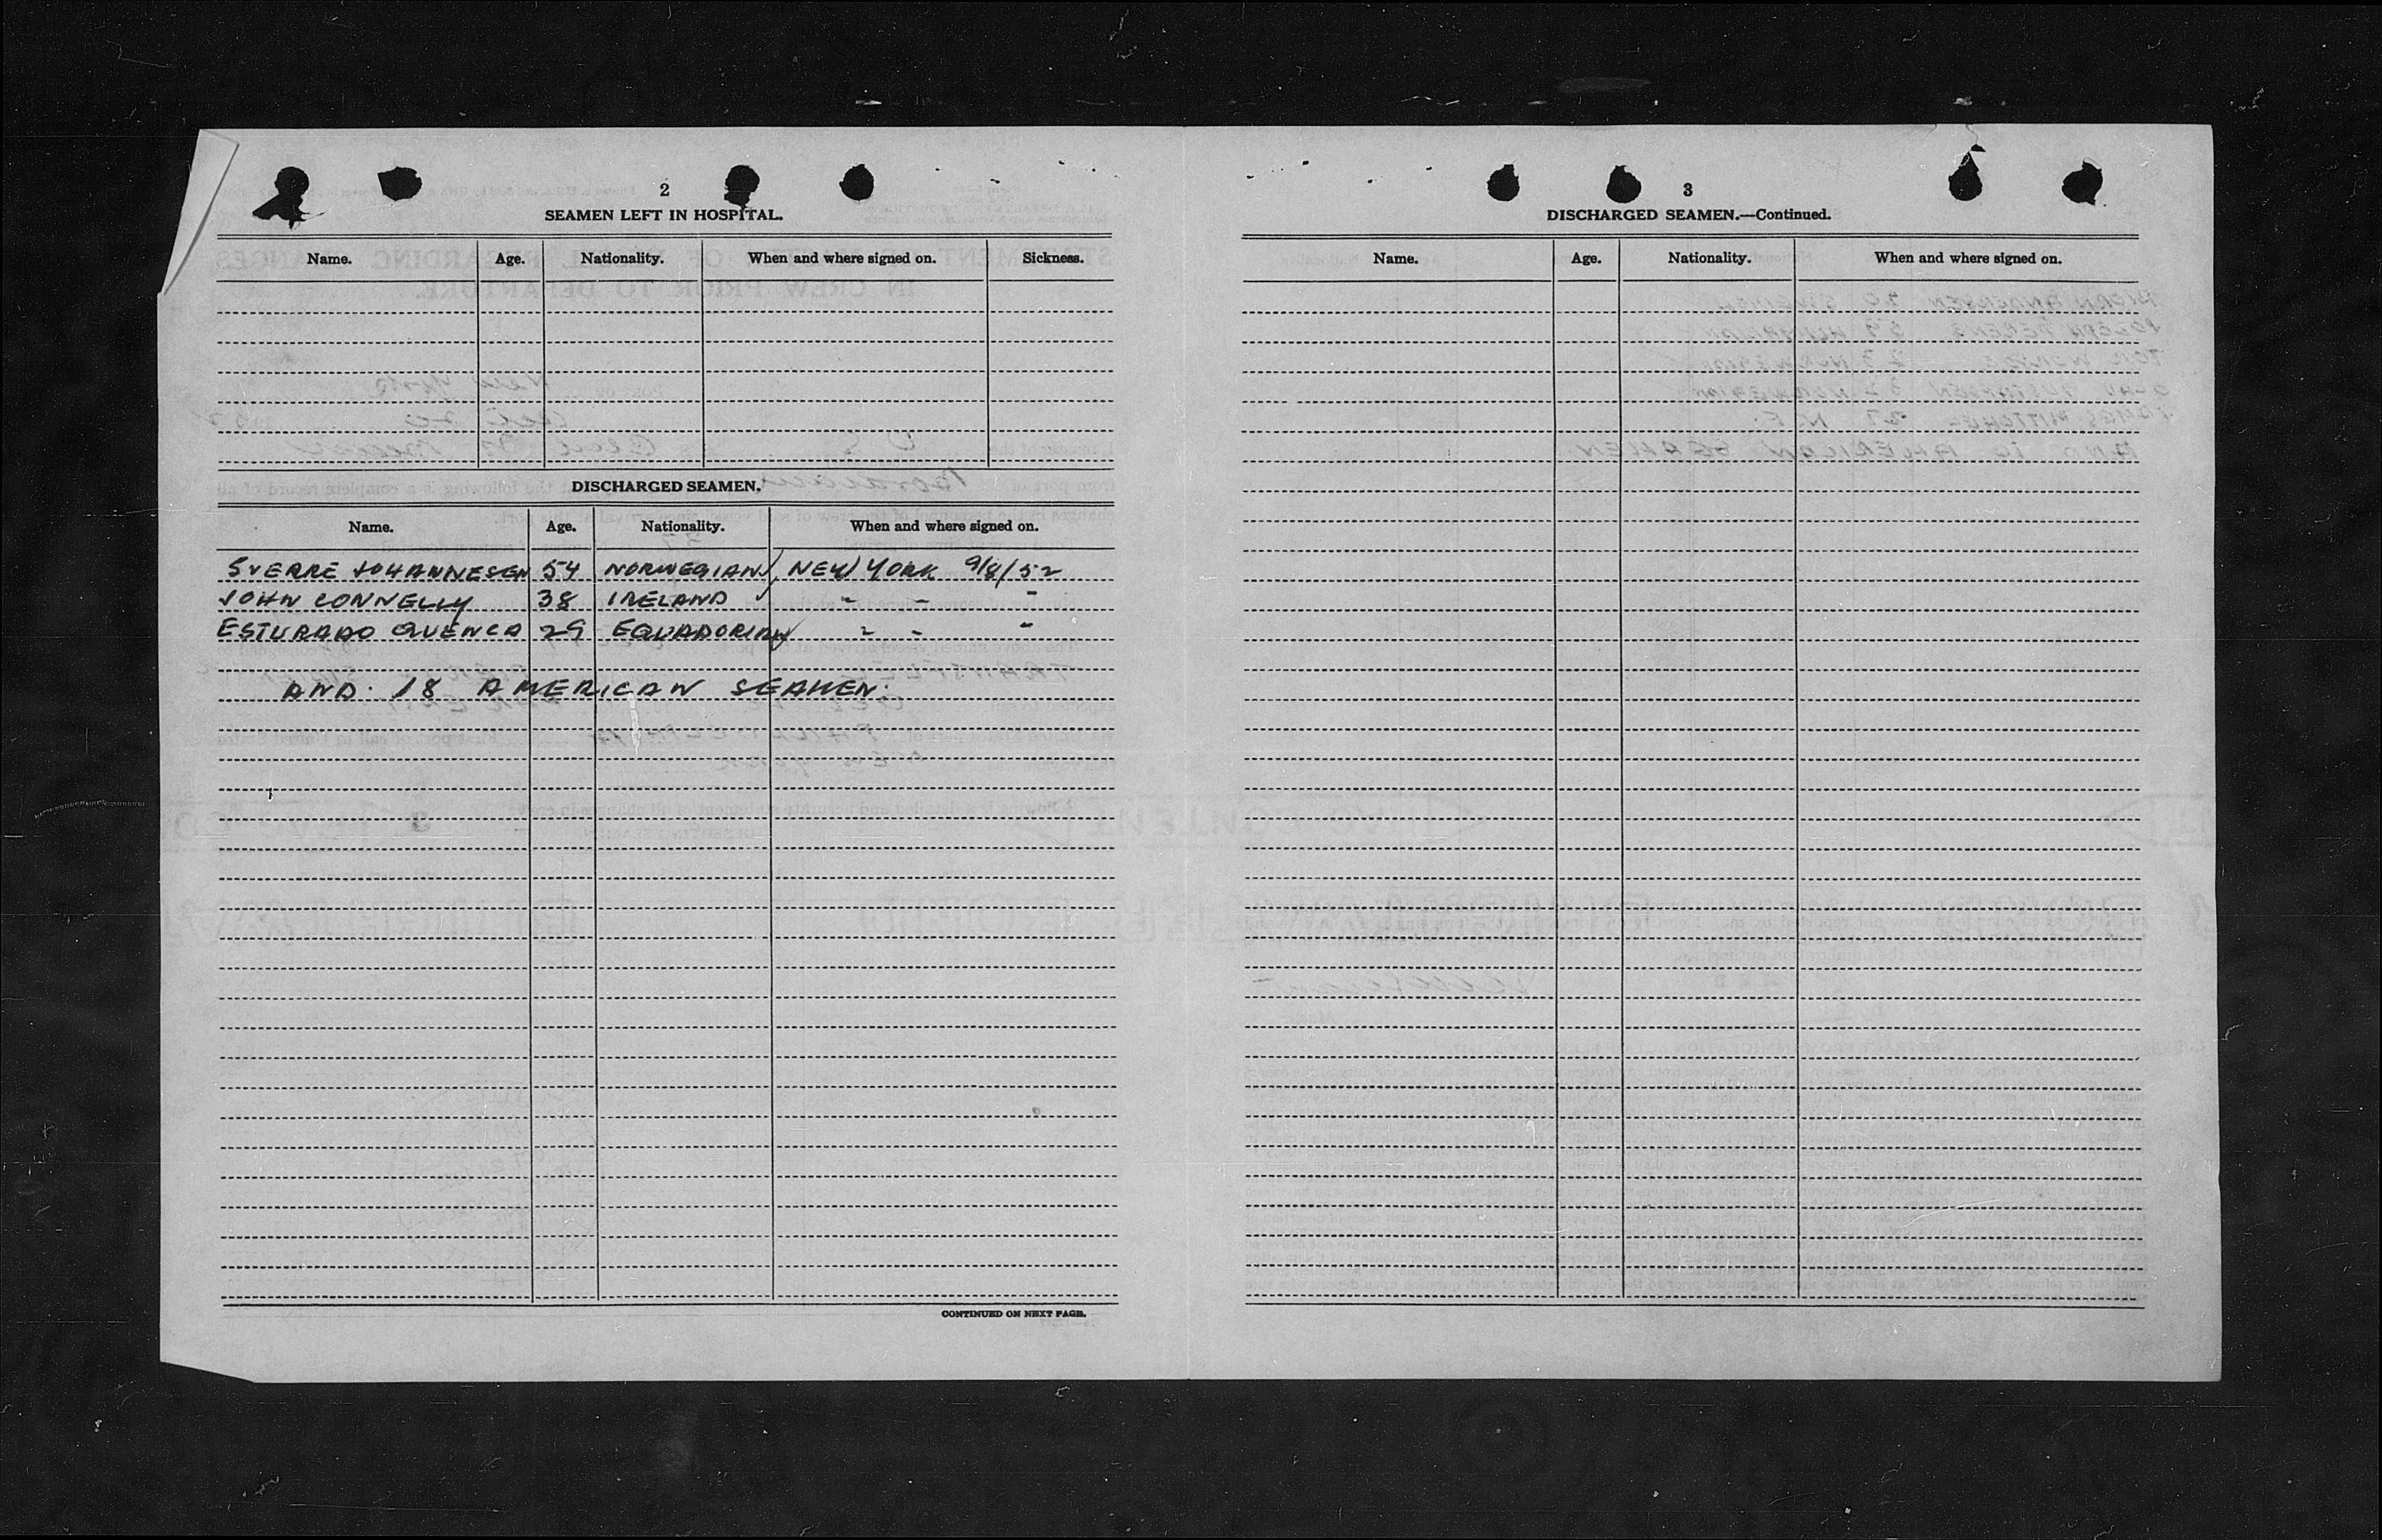 2
SEAMEN LEFT IN HOSPITAL.
Name. Age. Nationality. When and where signed on. Sickness.
DISCHARGED SEAMEN.
Name. Age. Nationality. When and where signed on.
SVERRE JOHANNESEN 54 NORWEGIAN NEW YORK 9/8/52
JOHN CONNELLY 38 IRELAND " " "
ESTURADO QUENCA 29 EQUADORIAN " " "
AND. 18 AMERICAN SEAMEN.
CONTINUED ON NEXT PAGE.
3
DISCHARGED SEAMEN.—Continued.
Name. Age. Nationality. When and where signed on.